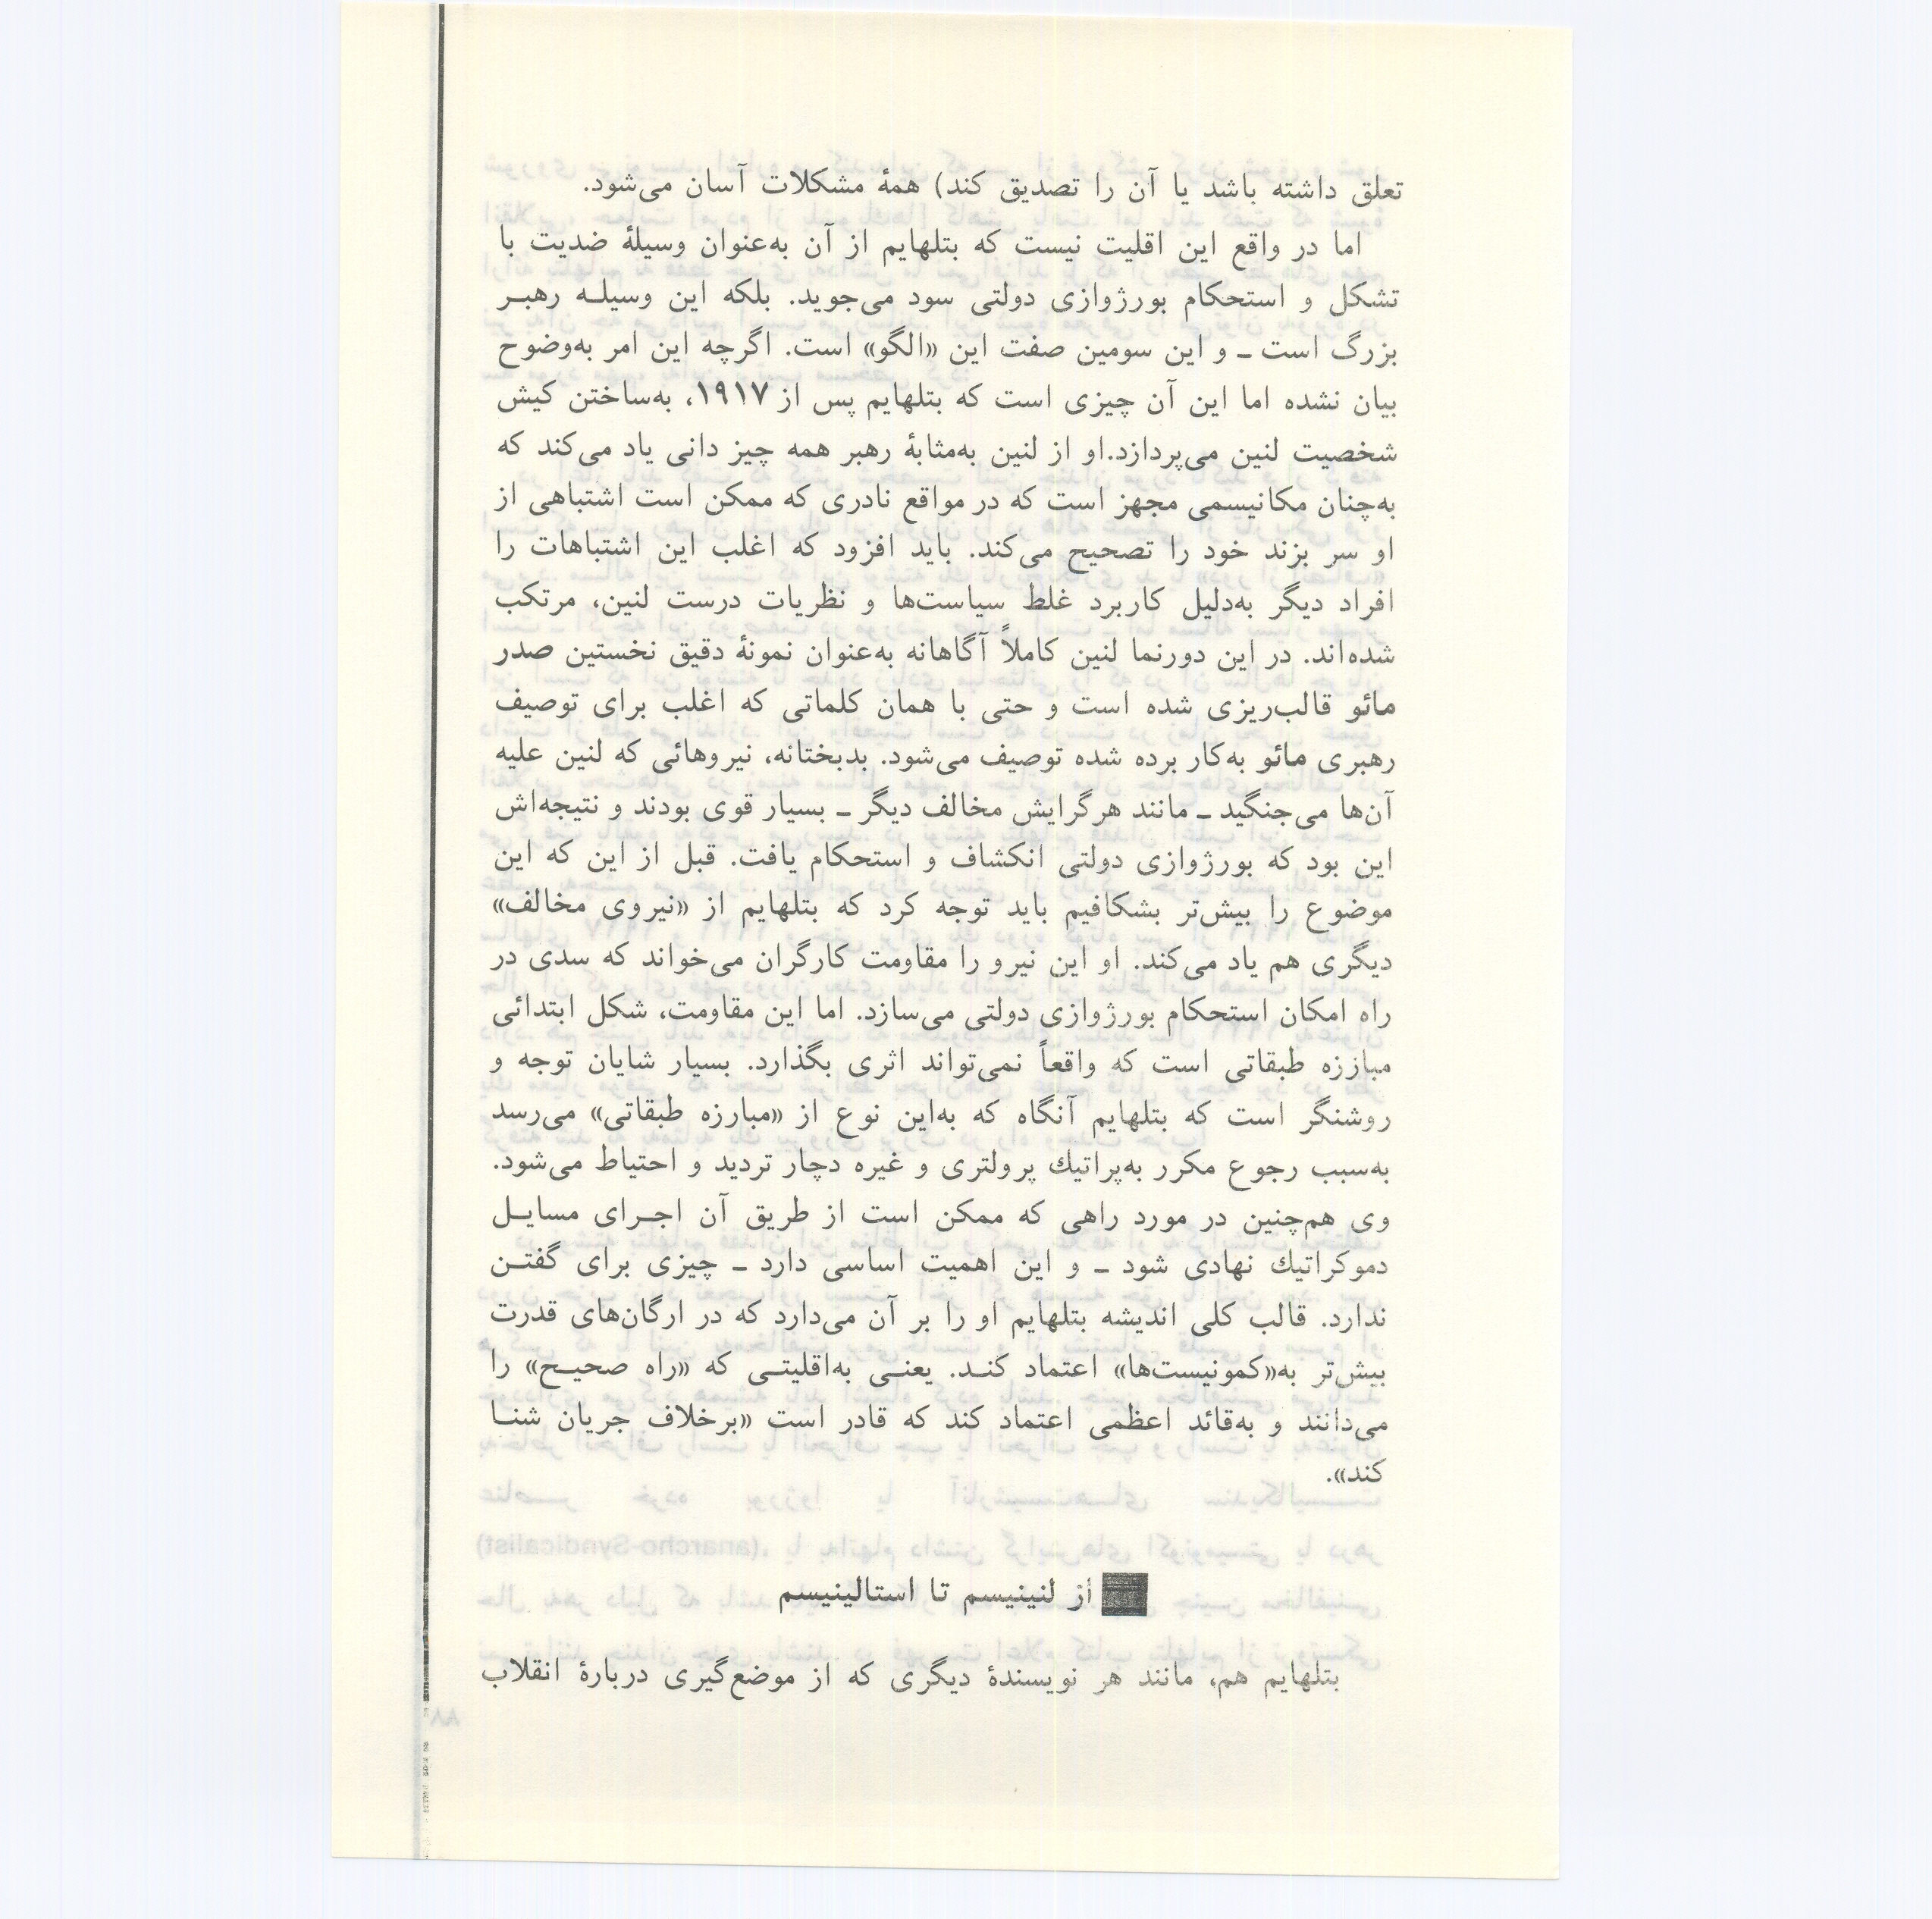 تعلق داشته باشد یا آن را تصدیق کند) همهٔ مشکلات آسان می‌شود.
اما در واقع این اقلیت نیست که بتلهایم از آن به‌عنوان وسیلهٔ ضدیت با
تشکل و استحکام بورژوازی دولتی سود می‌جوید. بلکه این وسیلـه رهبـر
بزرگ است ـ و این سومین صفت این «الگو» است. اگرچه این امر به‌وضوح
بیان نشده اما این آن چیزی است که بتلهایم پس از ۱۹۱۷، به‌ساختن کیش
شخصیت لنین می‌پردازد.او از لنین به‌مثابهٔ رهبر همه چیز دانی یاد می‌کند که
به‌چنان مکانیسمی مجهز است که در مواقع نادری که ممکن است اشتباهی از
او سر بزند خود را تصحیح می‌کند. باید افزود که اغلب این اشتباهات را
افراد دیگر به‌دلیل کاربرد غلط سیاست‌ها و نظریات درست لنین، مرتکب
شده‌اند. در این دورنما لنین کاملاً آگاهانه به‌عنوان نمونهٔ دقیق نخستین صدر
مائو قالب‌ریزی شده است و حتی با همان کلماتی که اغلب برای توصیف
رهبری مائو به‌کار برده شده توصیف می‌شود. بدبختانه، نیروهائی که لنین علیه
آن‌ها می‌جنگید ـ مانند هرگرایش مخالف دیگر ـ بسیار قوی بودند و نتیجه‌اش
این بود که بورژوازی دولتی انکشاف و استحکام یافت. قبل از این که این
موضوع را بیش‌تر بشکافیم باید توجه کرد که بتلهایم از «نیروی مخالف»
دیگری هم یاد می‌کند. او این نیرو را مقاومت کارگران می‌خواند که سدی در
راه امکان استحکام بورژوازی دولتی می‌سازد. اما این مقاومت، شکل ابتدائی
مباززه طبقاتی است که واقعاً نمی‌تواند اثری بگذارد. بسیار شایان توجه و
روشنگر است که بتلهایم آنگاه که به‌این نوع از «مبارزه طبقاتی» می‌رسد
به‌سبب رجوع مکرر به‌پراتیك پرولتری و غیره دچار تردید و احتیاط می‌شود.
وی هم‌چنین در مورد راهی که ممکن است از طریق آن اجـرای مسایـل
دموکراتیك نهادی شود ـ و این اهمیت اساسی دارد ـ چیزی برای گفتـن
ندارد. قالب کلی اندیشه بتلهایم او را بر آن می‌دارد که در ارگان‌های قدرت
بیش‌تر به«کمونیست‌ها» اعتماد کنـد. یعنـی به‌اقلیتـی که «راه صحیـح» را
می‌دانند و به‌قائد اعظمی اعتماد کند که قادر است «برخلاف جریان شنـا
کند».
از لنینیسم تا استالینیسم
بتلهایم هم، مانند هر نویسندهٔ دیگری که از موضع‌گیری دربارهٔ انقلاب